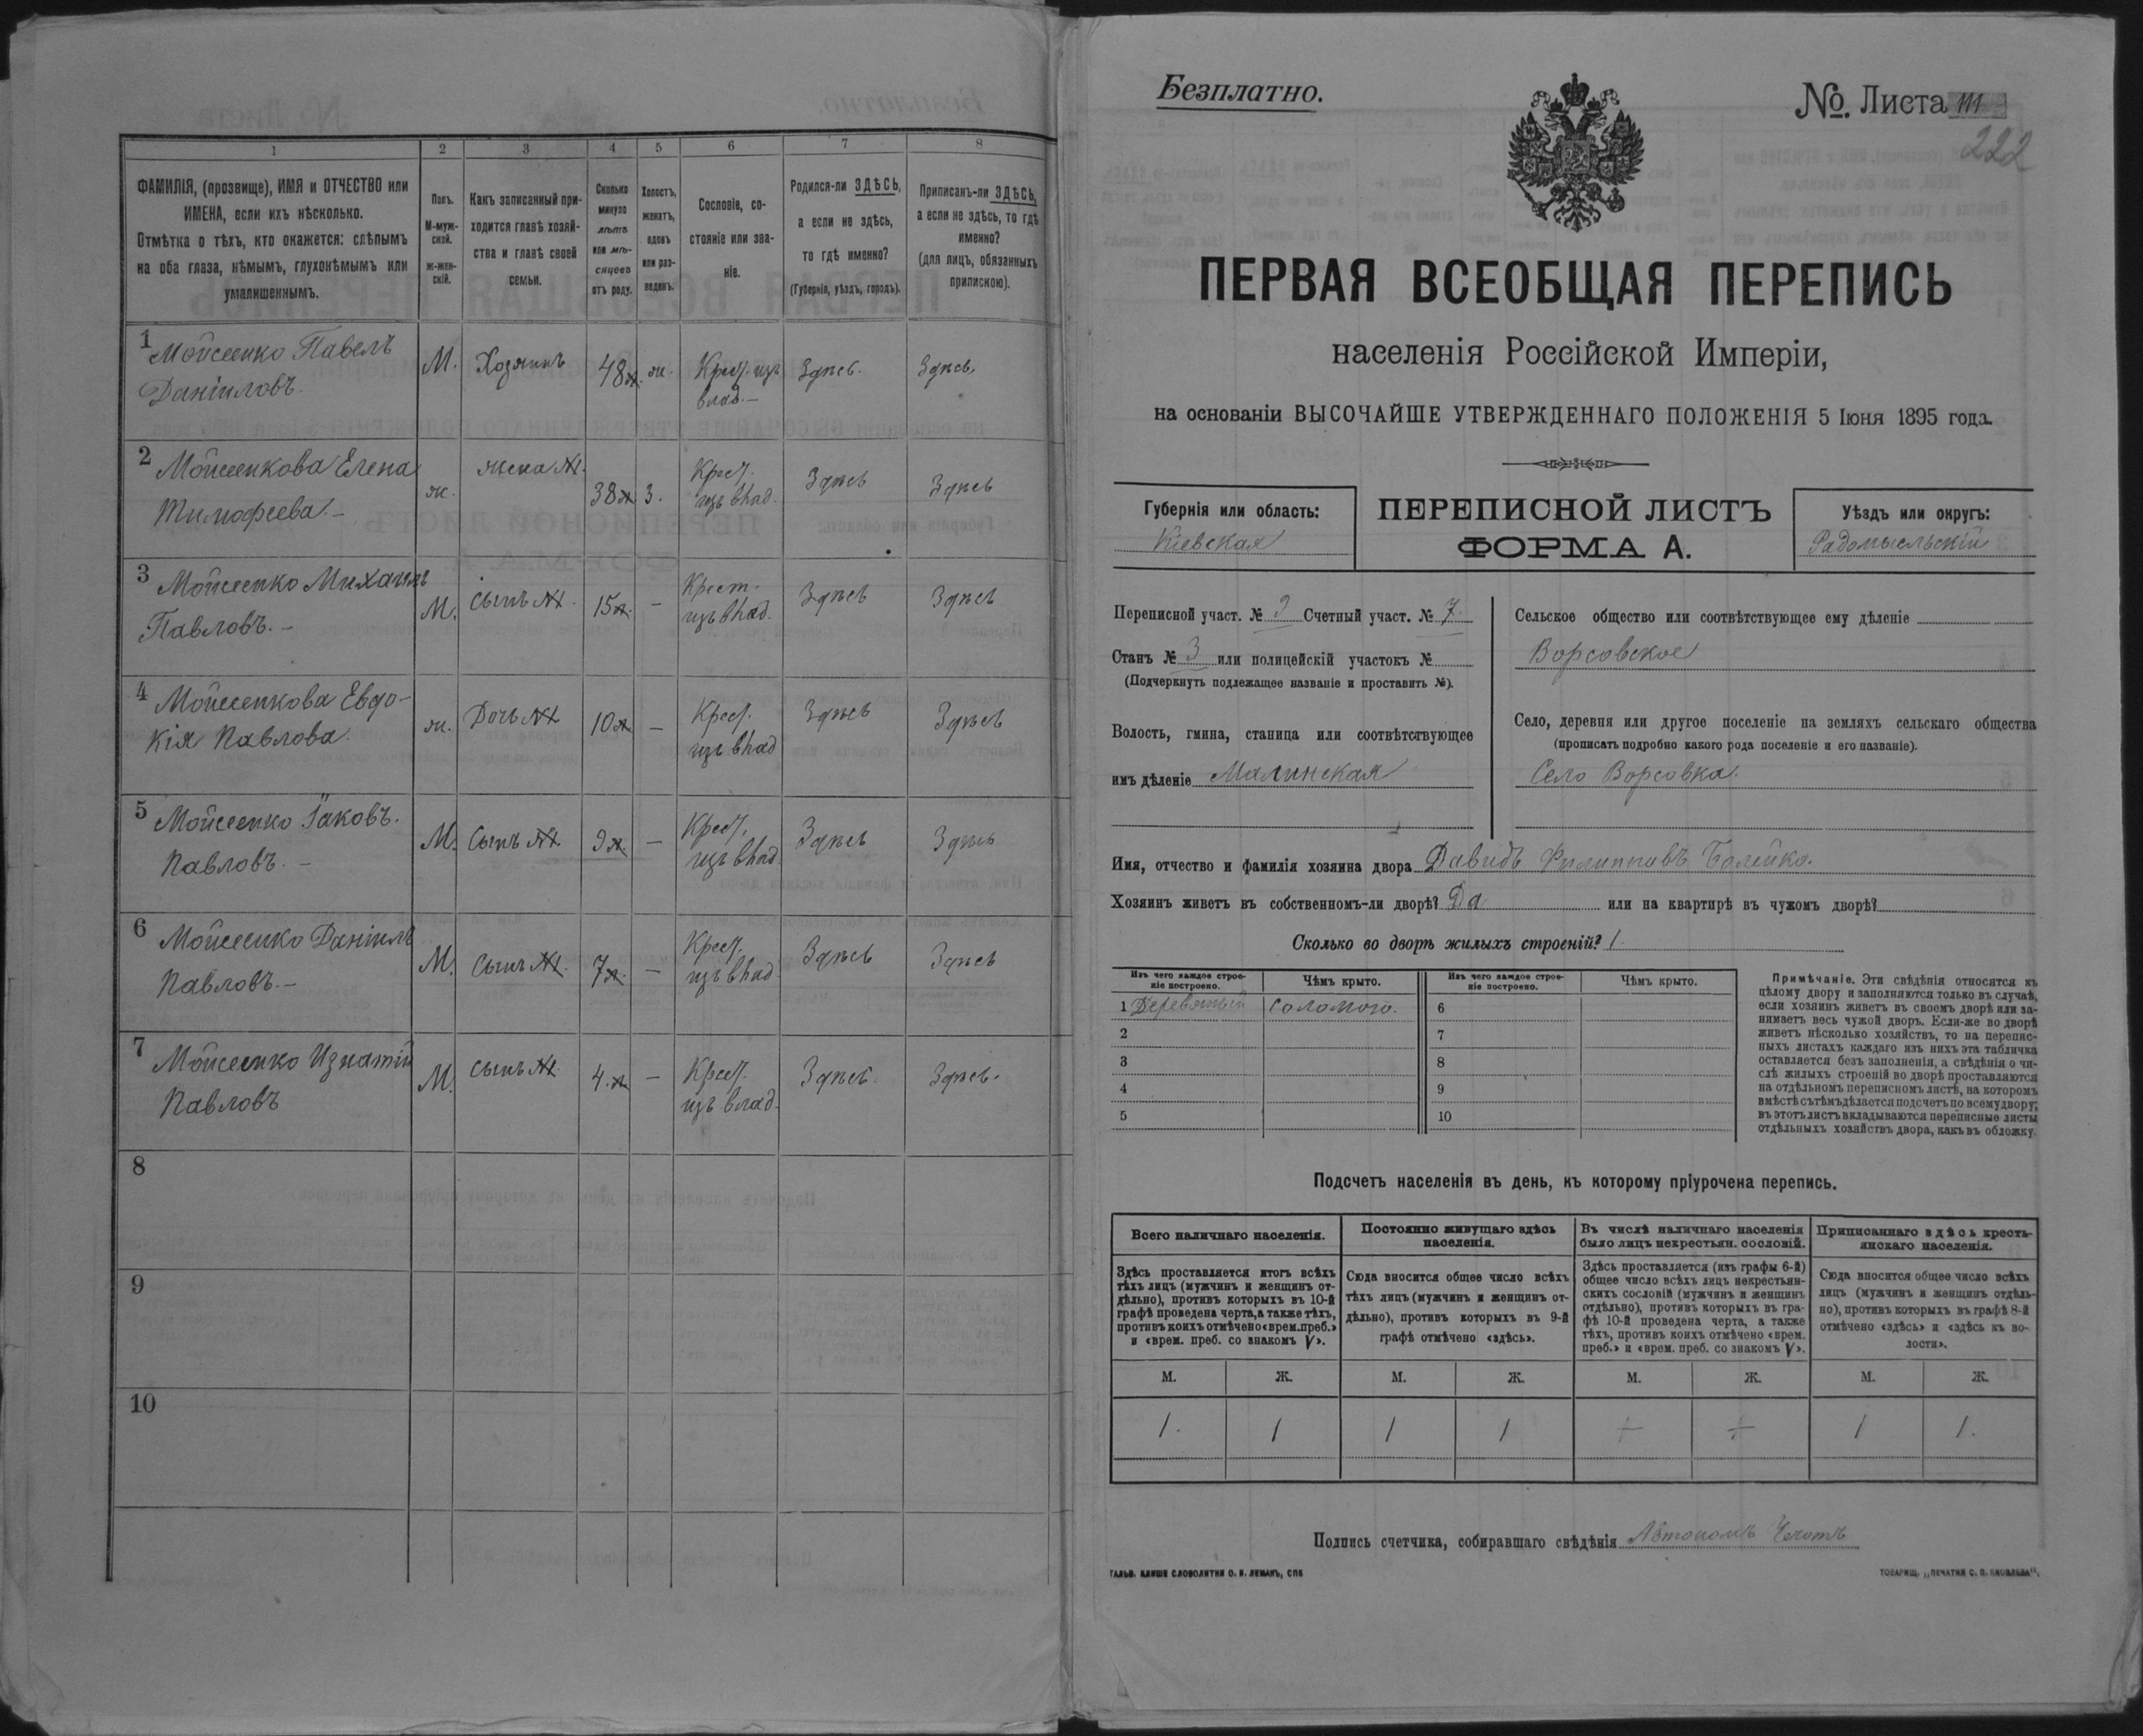 1 2 3 4 5 6 7 8
ФАМИЛІЯ, (прозвище), ИМЯ и ОТЧЕСТВО или
ИМЕНА, если ихъ нѣсколько.
Отмѣтка о тѣхъ, кто окажется: слѣпымъ
на оба глаза, нѣмымъ, глухонѣмымъ или
умалишеннымъ.
Полъ.
М-муж-
ской.
Ж-жен-
скій.
Какъ записанный при-
ходится главѣ хозяй-
ства и главѣ своей
семьи.
Сколько
минуло
лѣтъ
или мѣ-
сяцевъ
отъ роду.
Холостъ,
женатъ,
вдовъ
или раз-
веденъ.
Сословіе, со-
стояніе или зва-
ніе.
Родился-ли ЗДѢСЬ,
а если не здѣсь,
то гдѣ именно?
(Губернія, уѣздъ, городъ).
Приписанъ-ли ЗДѢСЬ,
а если не здѣсь, то гдѣ
именно?
(для лицъ, обязанныхъ
припискою).
1 Мойсеенко Павелъ М. Хозяинъ 48 ж. Крест. изъ Здѣсь. Здѣсь.
Даніиловъ. влад.-
2 Мойсеенкова Елена ж. жена №1. 38 з. Крест. Здѣсь Здѣсь
Тимофеева.- изъ влад.
3 Мойсеенко Михаилъ М. сынъ №1. 15 л. - Крест. Здѣсь Здѣсь
Павловъ.- изъ влад.
4 Мойсеенкова Евдо- ж. Дочь №1 10 - Крест. Здѣсь Здѣсь
кія Павлова. изъ влад
5 Мойсеенко Іаковъ. М. Сынъ №1 9 л. - Крест. Здѣсь Здѣсь
Павловъ.- изъ влад
6 Мойсеенко Даніилъ М. Сынъ №1. 7 л. - Крест. Здѣсь Здѣсь
Павловъ.- изъ влад
7 Мойсеенко Игнатій М. сынъ №1. 4. л - Крест. Здѣсь. Здѣсь.
Павловъ изъ влад.
8
9
10
Безплатно.
№. Листа 111
222
ПЕРВАЯ ВСЕОБЩАЯ ПЕРЕПИСЬ
населенія Россійской Имперіи,
на основаніи ВЫСОЧАЙШЕ УТВЕРЖДЕННАГО ПОЛОЖЕНІЯ 5 Іюня 1895 года.
Губернія или область:
Кіевская
ПЕРЕПИСНОЙ ЛИСТЪ
ФОРМА А.
Уѣздъ или округъ:
Радомысльскій
Переписной участ. № 9 Счетный участ. № 7.
Станъ № 3 или полицейскій участокъ №
(Подчеркнуть подлежащее названіе и проставить №).
Волость, гмина, станица или соотвѣтствующее
имъ дѣленіе Малинская
Сельское общество или соотвѣтствующее ему дѣленіе
Ворсовское
Село, деревня или другое поселеніе на земляхъ сельскаго общества
(прописать подробно какого рода поселеніе и его названіе).
Село Ворсовка.
Имя, отчество и фамилія хозяина двора Давидъ Филипповъ Болейко.
Хозяинъ живетъ въ собственномъ-ли дворѣ? Да или на квартирѣ въ чужомъ дворѣ?
Сколько во дворѣ жилыхъ строеній? 1.
Изъ чего каждое строе-
ніе построено.
Чѣмъ крыто.
Изъ чего каждое строе-
ніе построено.
Чѣмъ крыто.
1 Деревянный соломою. 6
2 7
3 8
4 9
5 10
Примѣчаніе. Эти свѣдѣнія относятся къ
цѣлому двору и заполняются только въ случаѣ,
если хозяинъ живетъ въ своемъ дворѣ или за-
нимаетъ весь чужой дворъ. Если-же во дворѣ
живетъ нѣсколько хозяйствъ, то на перепис-
ныхъ листахъ каждаго изъ нихъ эта табличка
оставляется безъ заполненія, а свѣдѣнія о чи-
слѣ жилыхъ строеній во дворѣ проставляются
на отдѣльномъ переписномъ листѣ, на которомъ
вмѣстѣ съ тѣмъ дѣлается подсчетъ по всему двору;
въ этотъ листъ вкладываются переписные листы
отдѣльныхъ хозяйствъ двора, какъ въ обложку.
Подсчетъ населенія въ день, къ которому пріурочена перепись.
Всего наличнаго населенія.
Постоянно живущаго здѣсь
населенія.
Въ числѣ наличнаго населенія
было лицъ некрестьян. сословій.
Приписаннаго здѣсь кресть-
янскаго населенія.
Здѣсь проставляется итогъ всѣхъ
тѣхъ лицъ (мужчинъ и женщинъ от-
дѣльно), противъ которыхъ въ 10-й
графѣ проведена черта, а также тѣхъ,
противъ коихъ отмѣчено «врем. преб.»
и «врем. преб. со знакомъ V».
Сюда вносится общее число всѣхъ
тѣхъ лицъ (мужчинъ и женщинъ от-
дѣльно), противъ которыхъ въ 9-й
графѣ отмѣчено «здѣсь».
Здѣсь проставляется (изъ графы 6-й)
общее число всѣхъ лицъ некрестьян-
скихъ сословій (мужчинъ и женщинъ
отдѣльно), противъ которыхъ въ гра-
фѣ 10-й проведена черта, а также
тѣхъ, противъ коихъ отмѣчено «врем.
преб.» и «врем. преб. со знакомъ V».
Сюда вносится общее число всѣхъ
лицъ (мужчинъ и женщинъ отдѣль-
но), противъ которыхъ въ графѣ 8-й
отмѣчено «здѣсь» и «здѣсь къ во-
лости».
М. Ж. М. Ж. М. Ж. М. Ж.
1. 1 1 1 + + 1 1.
Подпись счетчика, собиравшаго свѣдѣнія Автономъ
ГАЛЬВ. КЛИШЕ СЛОВОЛИТНИ О. И. ЛЕМАНЪ, СПБ
ТОВАРИЩ. „ПЕЧАТНЯ С. П. ЯКОВЛЕВА“.